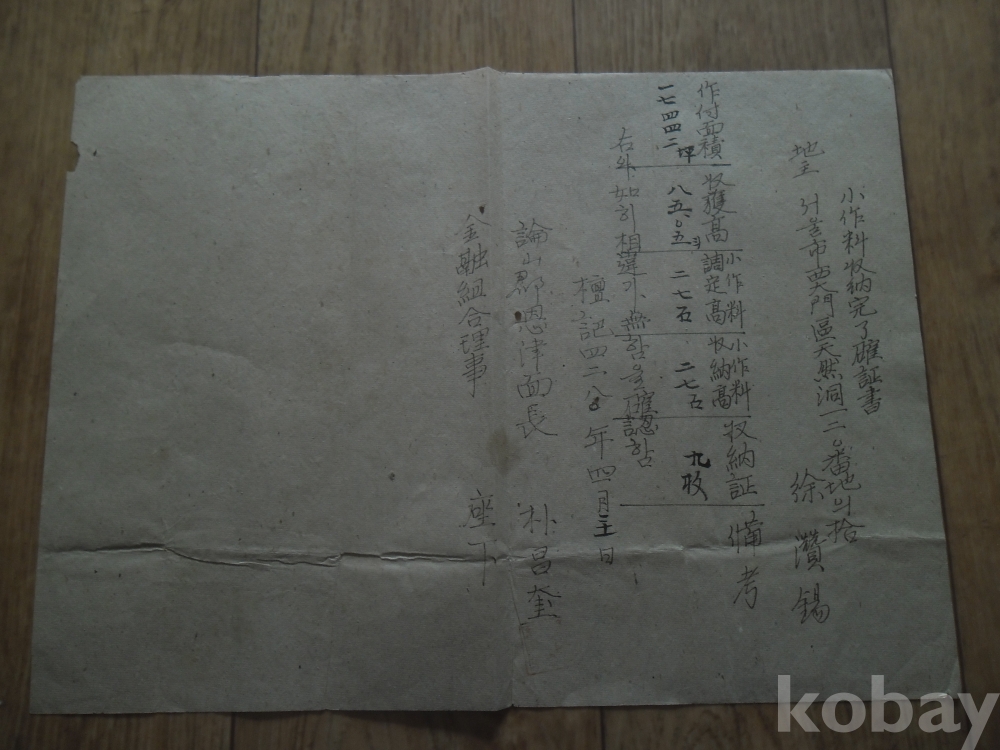 小作料收納完了確証書
地主 서울市西大門區天然洞一二〇番地의拾
徐 濽 錫
作付面積 收穫高 小作料調定高 小作料收納高 收納証 備考
一七四四二坪 八五〇五 二七石 二七石 九枚
右와如히相違가無함을確認함
檀記四二八 年四月 日
論山郡恩津面長 朴昌奎
金融組合理事 座下
kobay